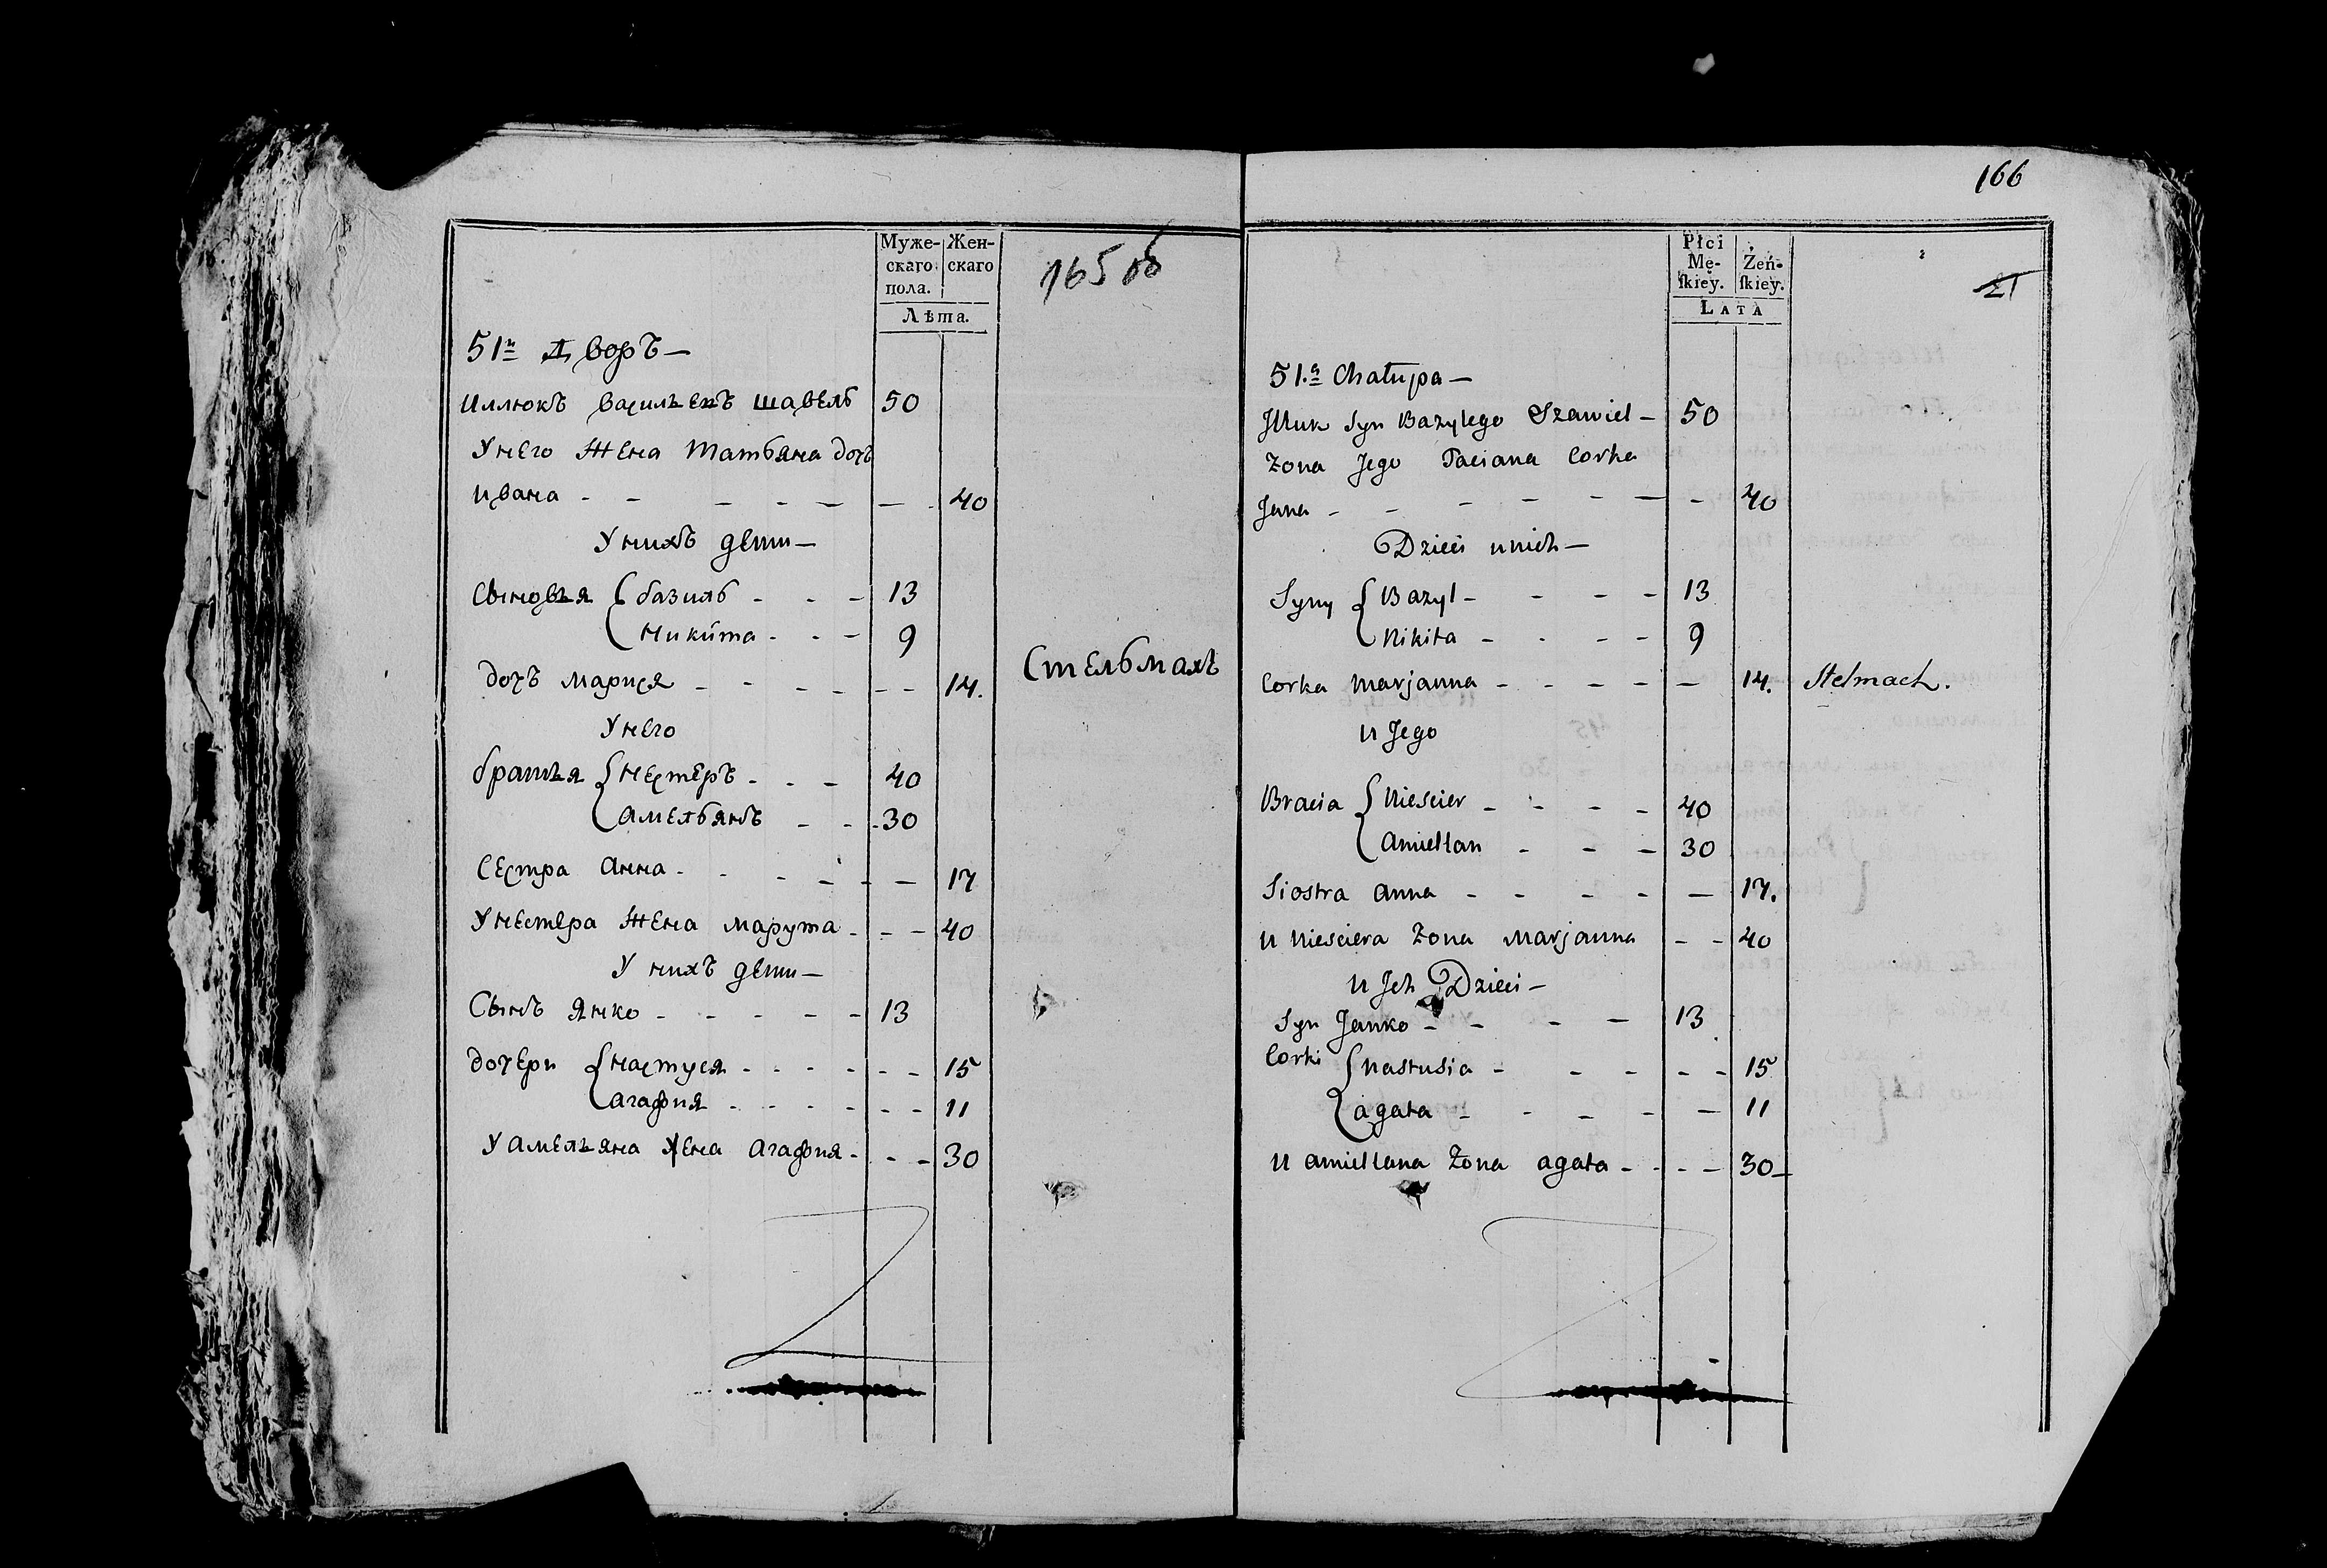 Муже- Жен-
скаго скаго
пола.
Лѣта.
165 об
51й Дворъ —
Иллюкъ васильевъ шавель 50
Унего Жена татьяна дочь
ивана - - - - - - - 40
Унихъ дети —
Сыновья { базиль - - - 13
никита - - - 9
дочь марися - - - - - - 14.
Стельмахъ
Унего
братья { нестеръ - - - 40
амельянъ - - - 30
Сестра анна - - - - - - 17
Унестера Жена марута - - - 40
У нихъ дети —
Сынъ янко - - - - - 13
дочери { настуся - - - - - - - 15
агафия - - - - - - - 11
У амельяна жена агафия - - - 30
166
Płci
Mę- Żeń-
ſkiey. ſkiey.
LATA
21
51.a Chałupa —
Jlluk Syn Bazylego Szawiel — 50
Żona Jego Taciana Corka
Jana - - - - - - - 40
Dzieci unich —
Syny { Bazyl - - - - 13
Nikita - - - - 9
Corka Marjanna - - - - - 14. Stelmach.
u Jego
Bracia { Niescier - - - - 40
Amiellan - - - 30
Siostra anna - - - - - 17.
u Niesciera Żona Marjanna - - 40
u Jch Dzieci —
Syn Janko - - - - 13
Corki { Nastusia - - - - - 15
agata - - - - - 11
u amiellana Żona agata - - - - 30 —